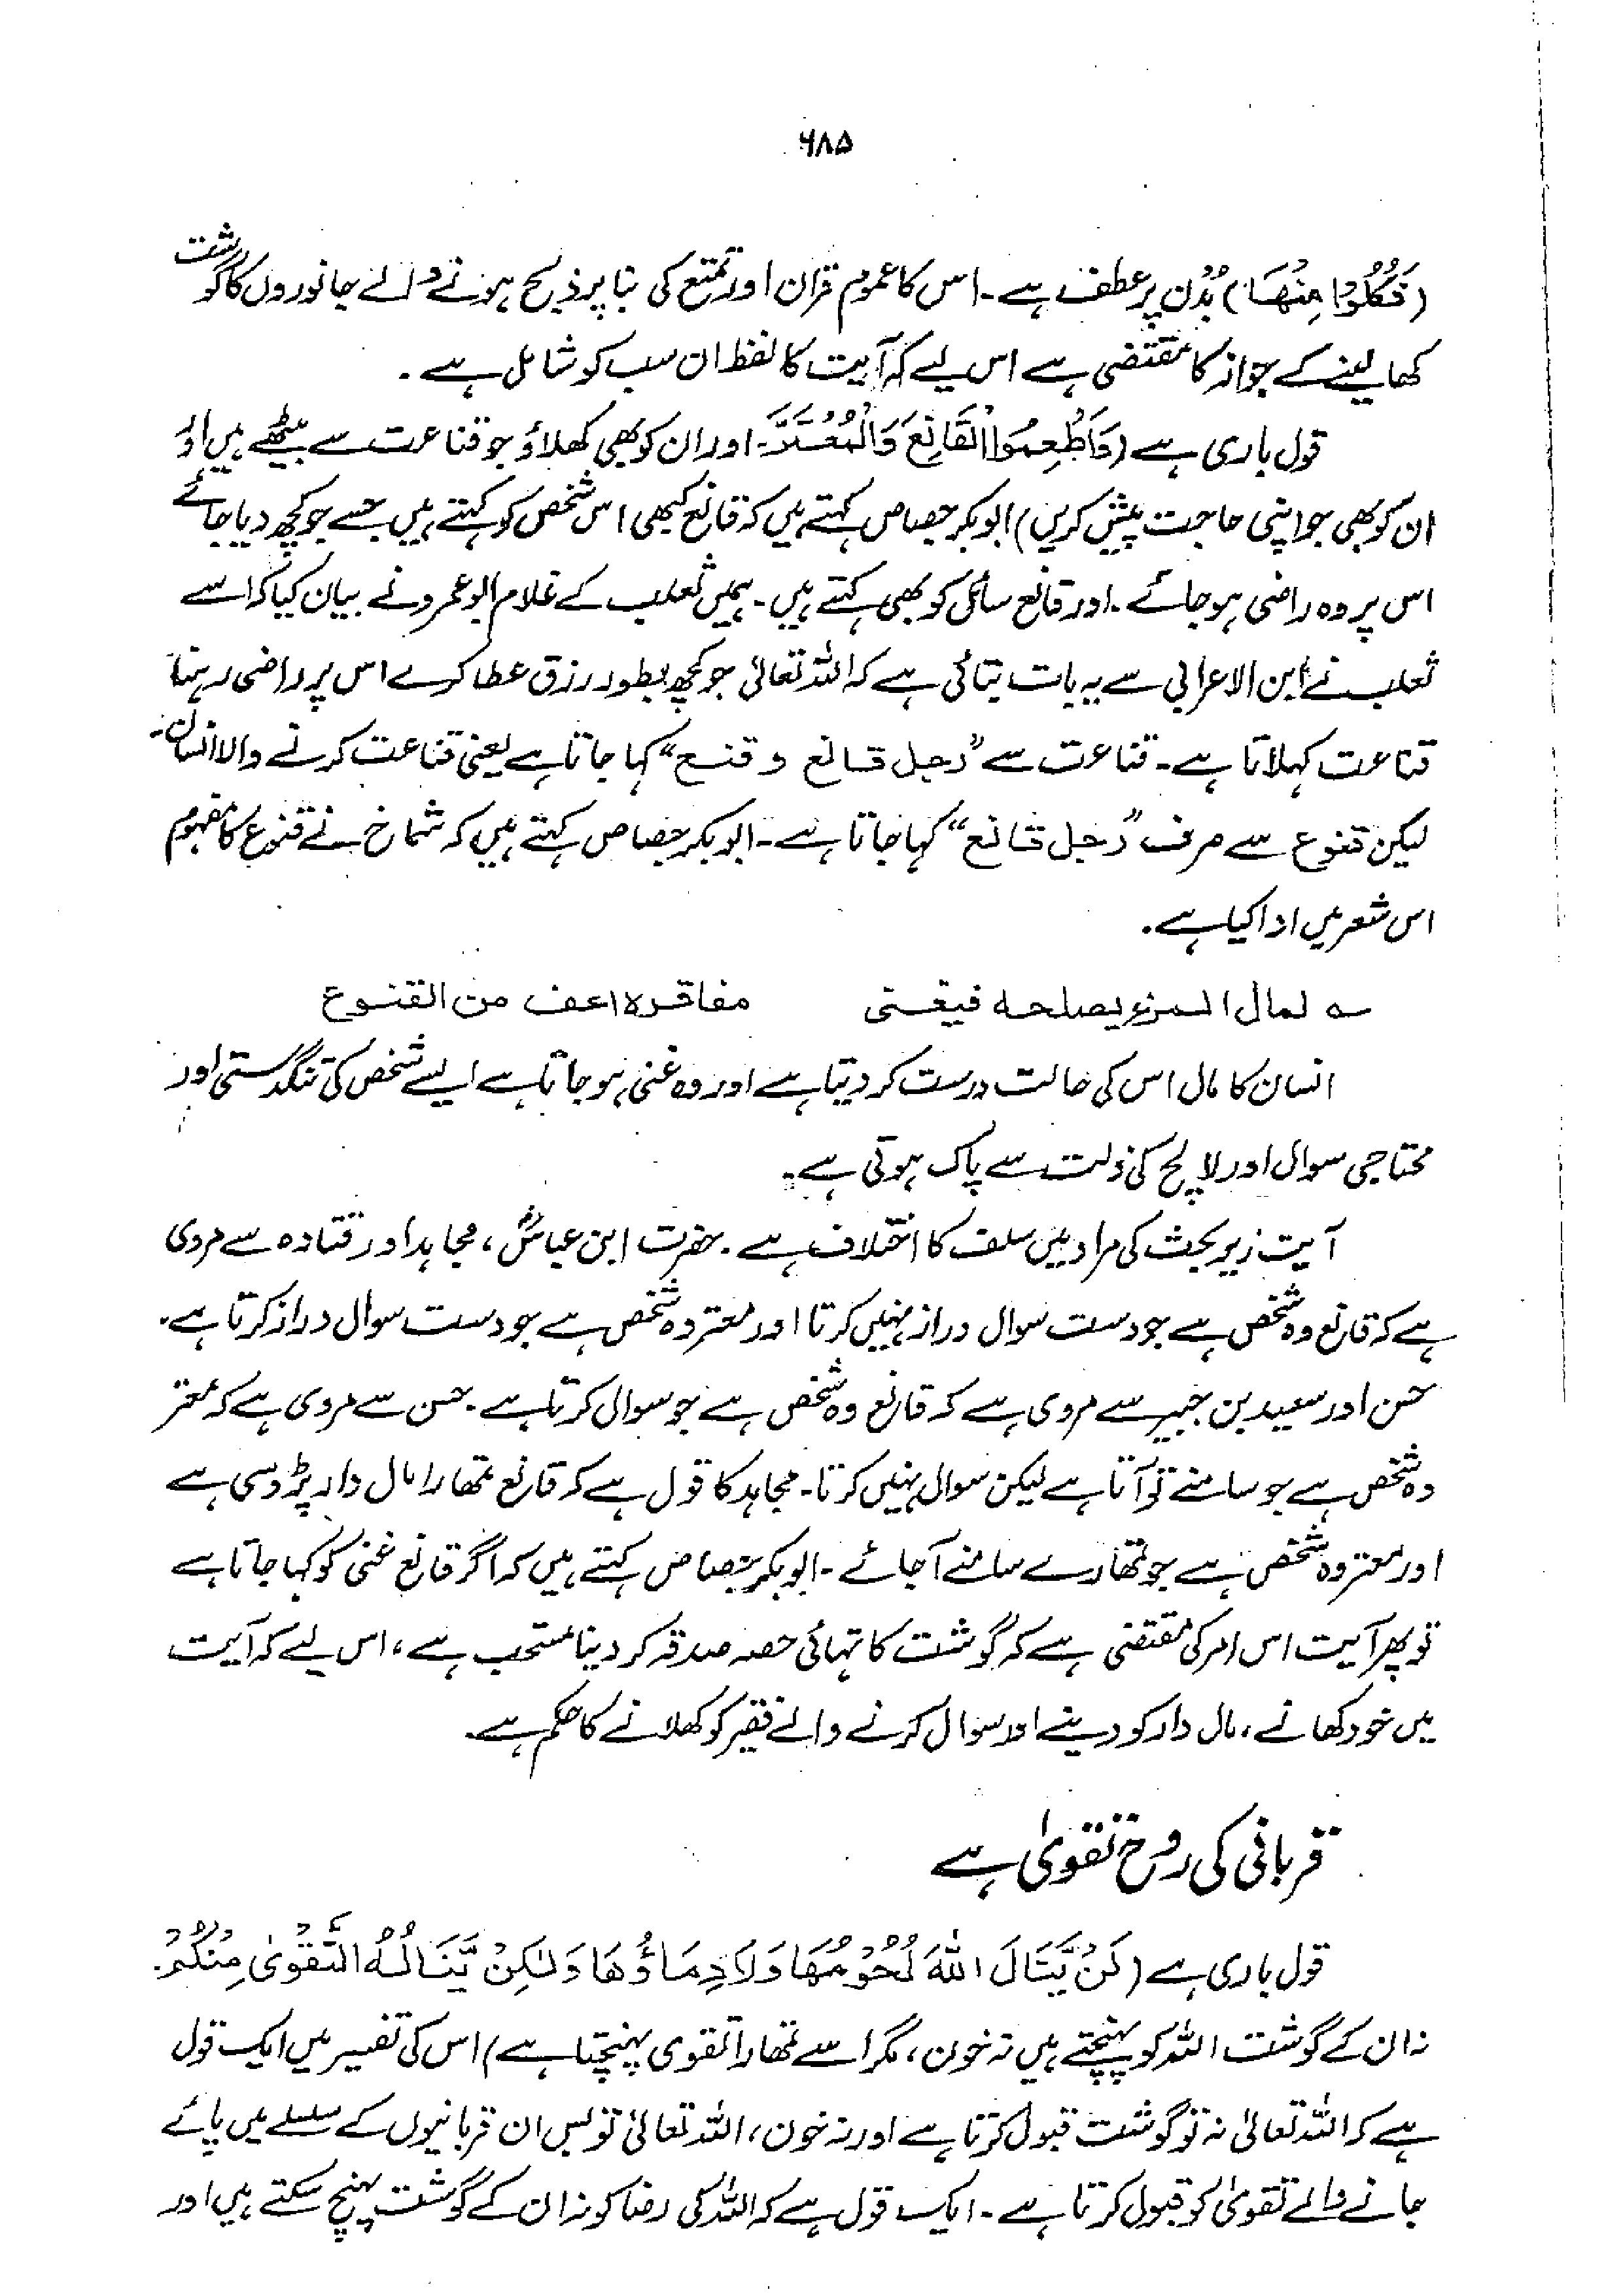 ۶۸۵
(فَکُلُوْا مِنْهَا) بُدْن پر عطف ہے۔ اس کا عموم قران اور تمتع کی بنا پر ذبح ہونے والے جانوروں کا گوشت
کھا لینے کے جواز کا مقتضی ہے اس لیے کہ آیت کا لفظ ان سب کو شامل ہے۔
قول باری ہے (وَاَطْعِمُوا الْقَانِعَ وَالْمُعْتَرَّ۔ اور ان کو بھی کھلاؤ جو قناعت سے بیٹھے ہیں اور
ان کو بھی جو اپنی حاجت پیش کریں) ابوبکر جصاص کہتے ہیں کہ قانع کبھی اس شخص کو کہتے ہیں جسے جو کچھ دیا جائے
اس پر وہ راضی ہو جائے۔ اور قانع سائل کو بھی کہتے ہیں۔ ہمیں ثعلب کے غلام ابوعمرو نے بیان کیا کہ اسے
ثعلب نے ابن الاعرابی سے یہ بات بتائی ہے کہ اللہ تعالیٰ جو کچھ بطور رزق عطا کرے اس پر راضی رہنا
قناعت کہلاتا ہے۔ قناعت سے "رجل قانع و قنع" کہا جاتا ہے یعنی قناعت کرنے والا انسان۔
لیکن قنوع سے صرف "رجل قانع" کہا جاتا ہے۔ ابوبکر جصاص کہتے ہیں کہ شماخ نے قنوع کا مفہوم
اس شعر میں ادا کیا ہے۔
؎ لمال المرء یصلحه فیغنی مفاقره اعف من القنوع
انسان کا مال اس کی حالت درست کر دیتا ہے اور وہ غنی ہو جاتا ہے ایسے شخص کی تنگدستی اور
محتاجی سوال اور لالچ کی ذلت سے پاک ہوتی ہے۔
آیت زیر بحث کی مراد میں سلف کا اختلاف ہے۔ حضرت ابن عباسؓ، مجاہد اور قتادہ سے مروی
ہے کہ قانع وہ شخص ہے جو دست سوال دراز نہیں کرتا اور معتر وہ شخص ہے جو دست سوال دراز کرتا ہے۔
حسن اور سعید بن جبیر سے مروی ہے کہ قانع وہ شخص ہے جو سوال کرتا ہے۔ حسن سے مروی ہے کہ معتر
وہ شخص ہے جو سامنے تو آتا ہے لیکن سوال نہیں کرتا۔ مجاہد کا قول ہے کہ قانع تمھارا مال دار پڑوسی ہے
اور معتر وہ شخص ہے جو تمھارے سامنے آجائے۔ ابوبکر جصاص کہتے ہیں کہ اگر قانع غنی کو کہا جاتا ہے
تو پھر آیت اس امر کی مقتضی ہے کہ گوشت کا تہائی حصہ صدقہ کر دینا مستحب ہے، اس لیے کہ آیت
میں خود کھانے، مال دار کو دینے اور سوال کرنے والے فقیر کو کھلانے کا حکم ہے۔
قربانی کی روح تقویٰ ہے
قول باری ہے (لَنْ یَّنَالَ اللّٰهَ لُحُوْمُهَا وَلَا دِمَاؤُهَا وَلٰکِنْ یَّنَالُهُ التَّقْوٰی مِنْکُمْ۔
نہ ان کے گوشت اللہ کو پہنچتے ہیں نہ خون، مگر اسے تمھارا تقوی پہنچتا ہے) اس کی تفسیر میں ایک قول
ہے کہ اللہ تعالیٰ نہ تو گوشت قبول کرتا ہے اور نہ خون، اللہ تعالیٰ تو بس ان قربانیوں کے سلسلے میں پائے
جانے والے تقویٰ کو قبول کرتا ہے۔ ایک قول ہے کہ اللہ کی رضا کو نہ ان کے گوشت پہنچ سکتے ہیں اور